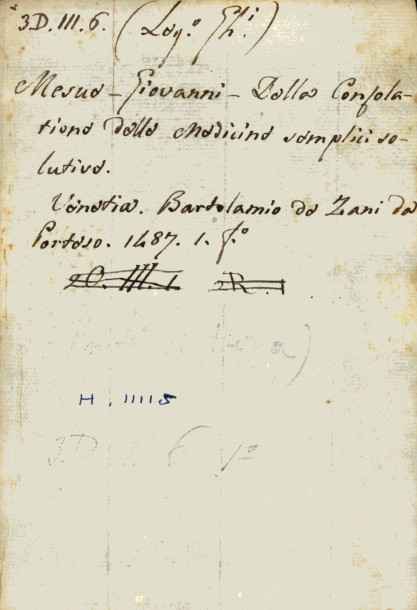 3D. III. 6. (Leg.º Gh.i)
Mesue - Giovanni - Della Consola-
tione delle Medicine semplici so-
lutive.
Venetia. Bartolamio de Zani da
Porteso. 1487. 1. f.º
O. III. 1 R. 1
H. 11115
3D 6 1º